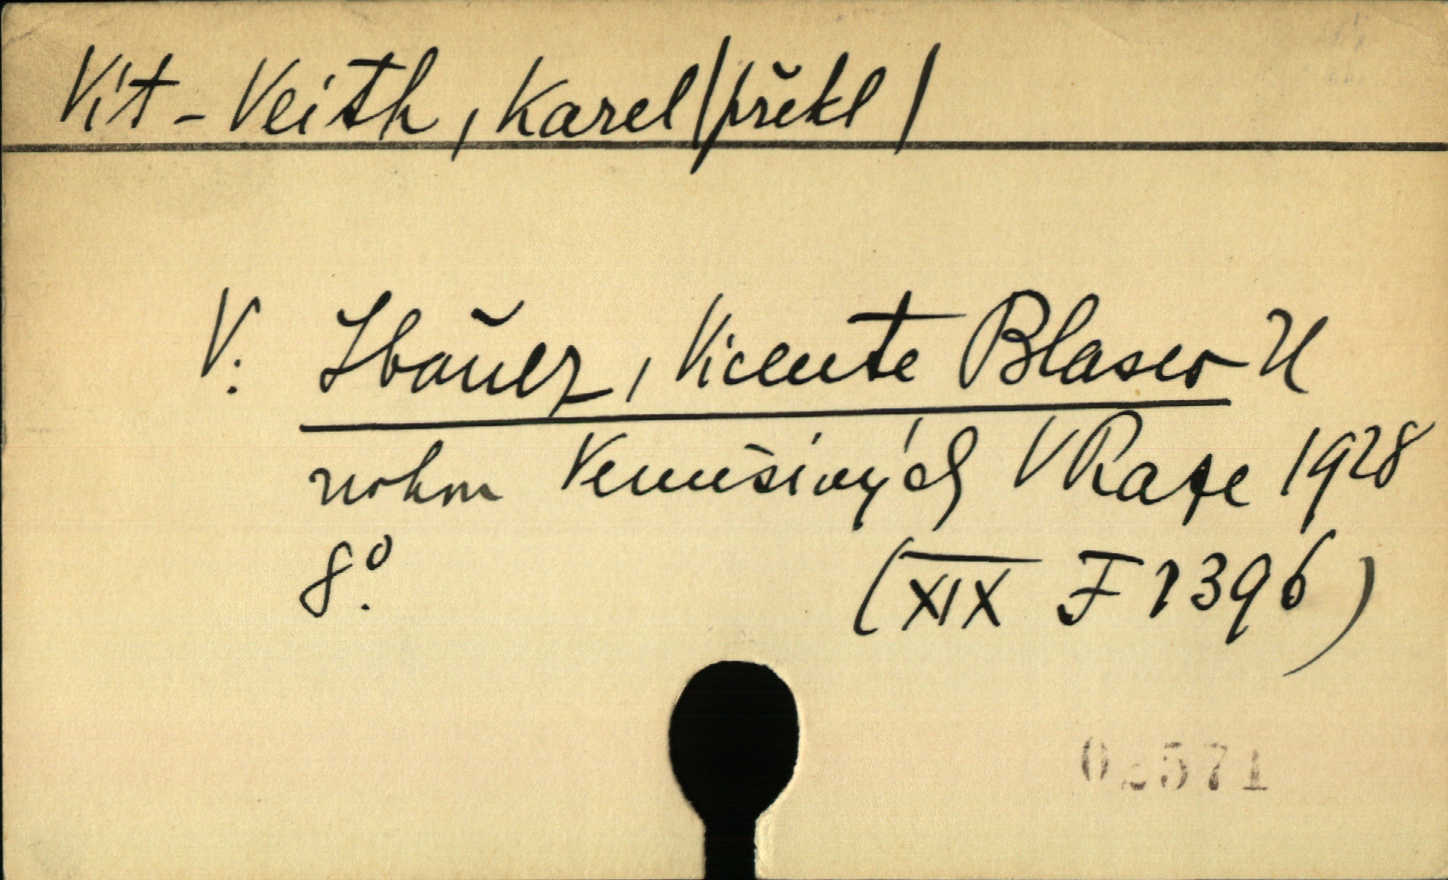 Vít-Veith, Karel (překl)
V: Ibaňez, Vicente Blasco U
nohou Venušiných V Praze 1928
8º.
(XIX F 1396)
02571